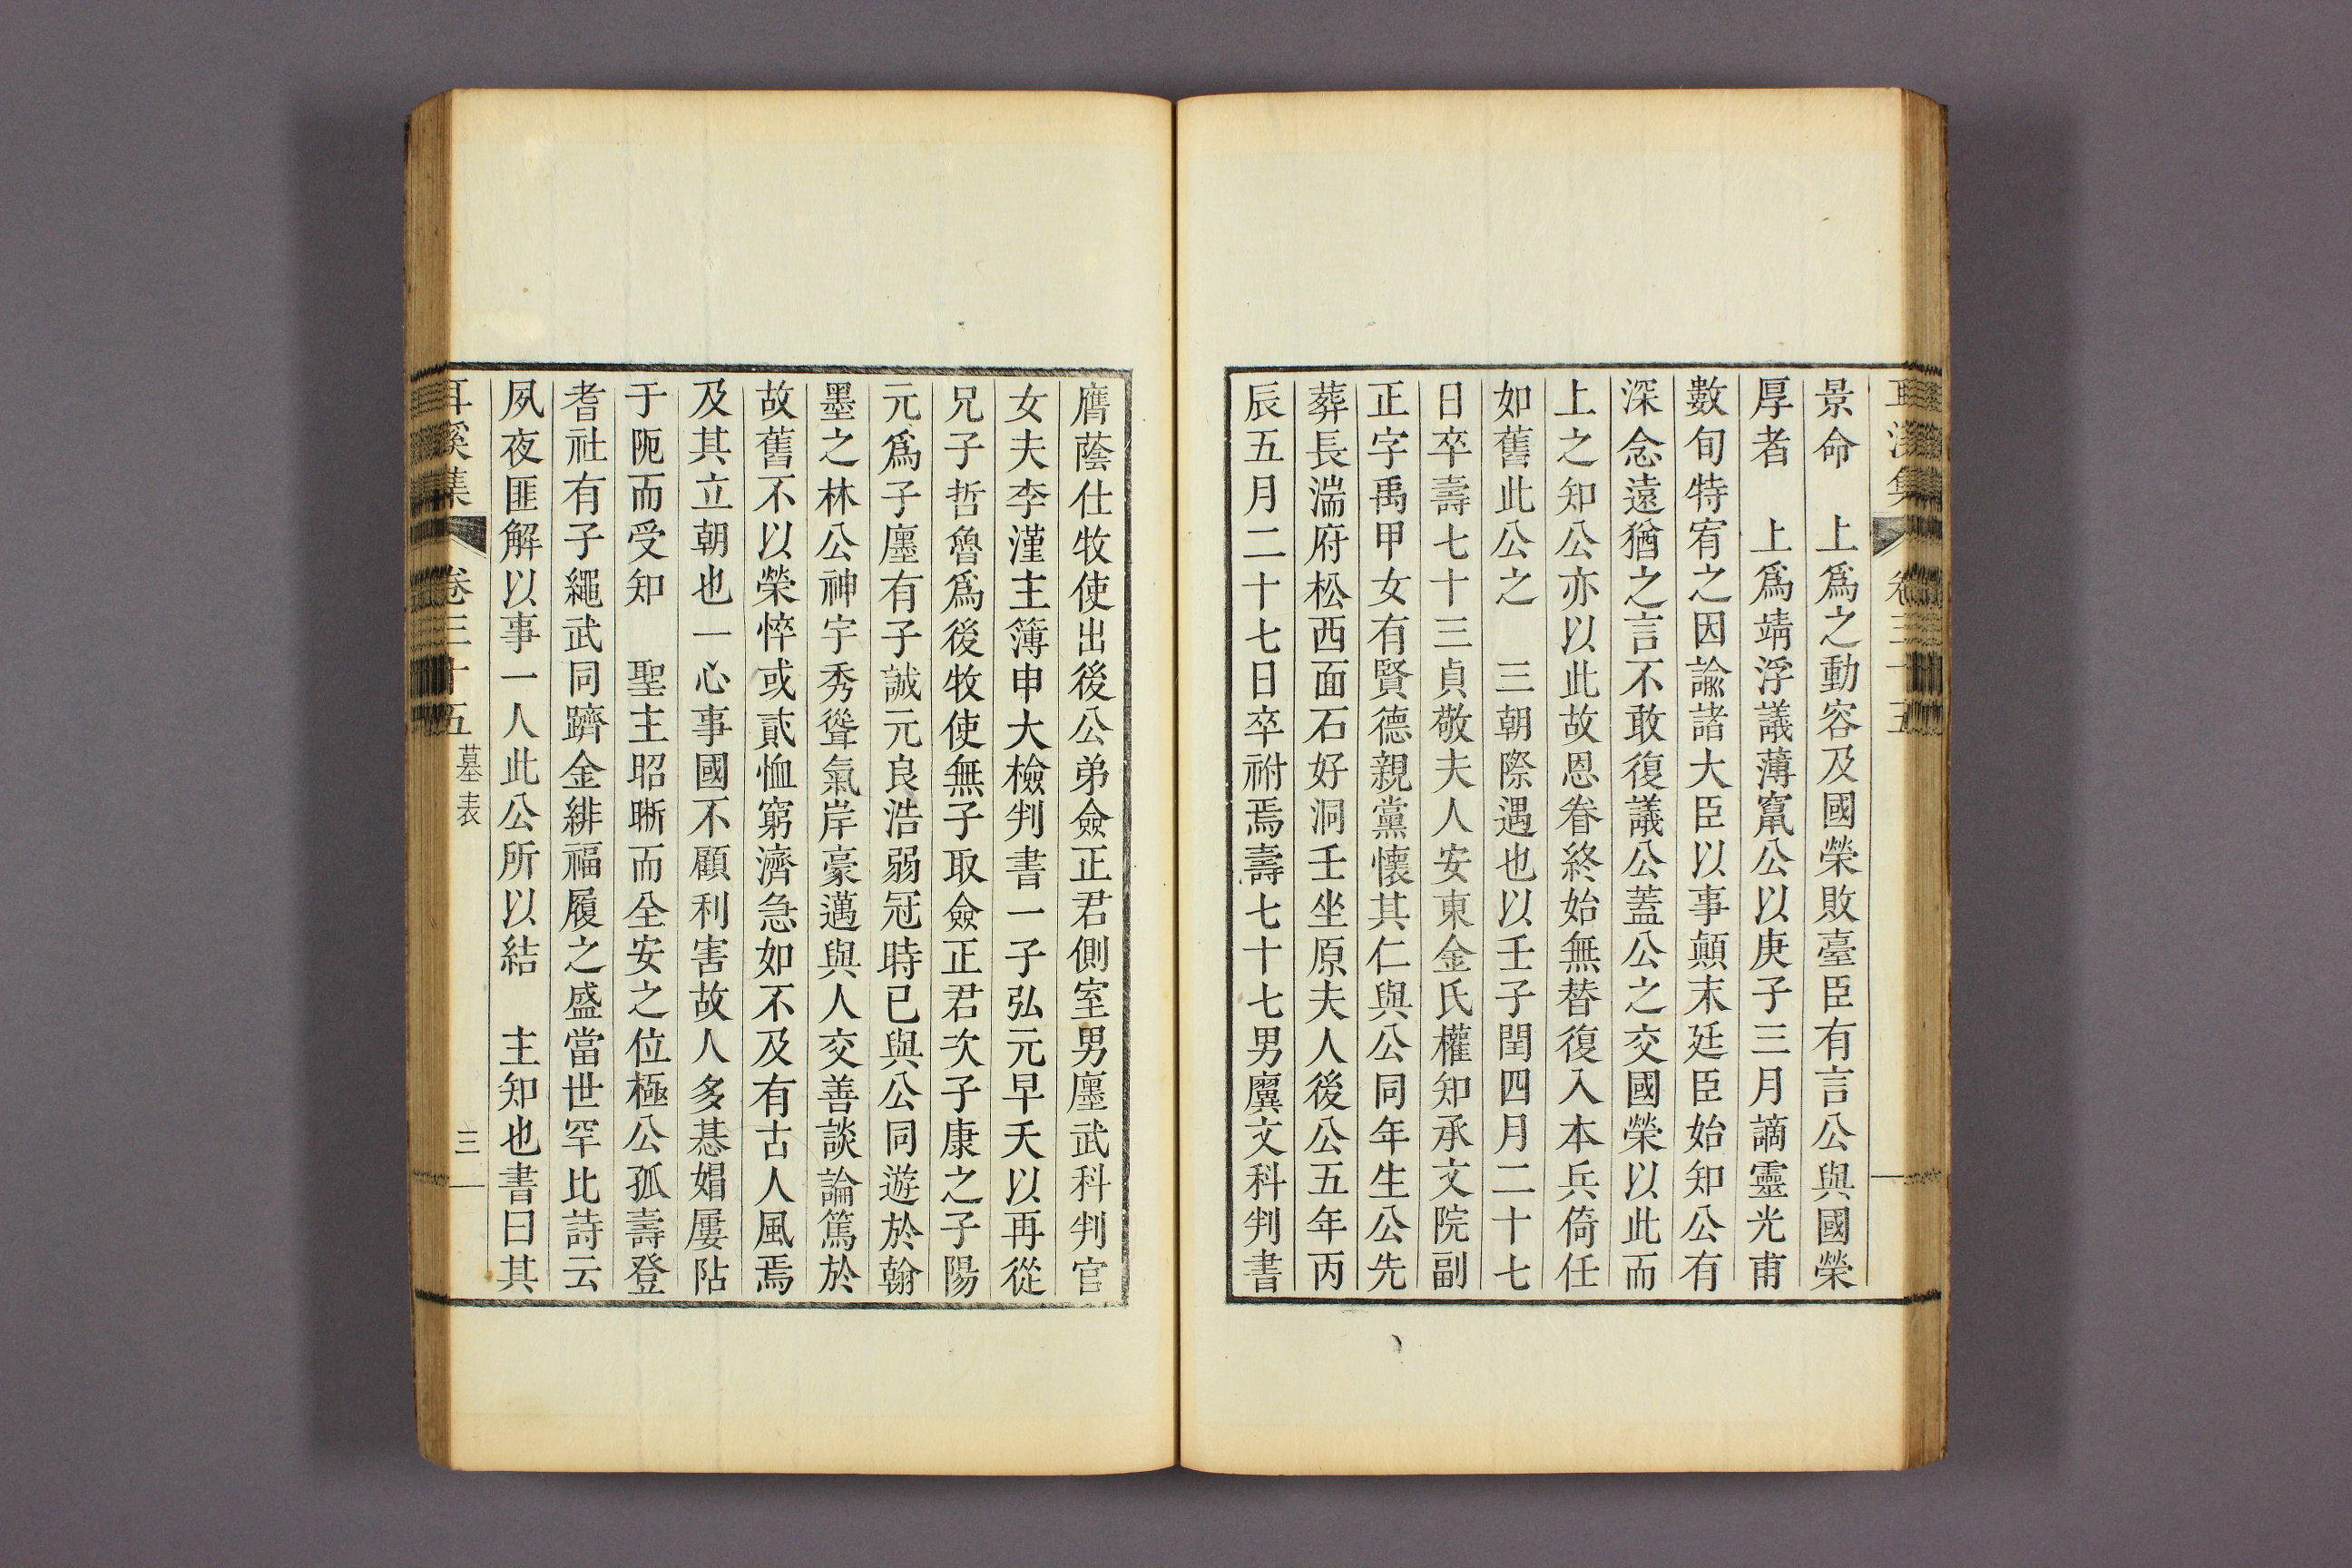 景命　上爲之動容及國榮敗臺臣有言公與國榮
厚者　上爲靖浮議薄竄公以庚子三月謫靈光甫
數旬特宥之因諭諸大臣以事顛末廷臣始知公有
深念遠猶之言不敢復議公蓋公之交國榮以此而
上之知公亦以此故恩眷終始無替復入本兵倚任
如舊此公之　三朝際遇也以壬子閏四月二十七
日卒壽七十三貞敬夫人安東金氏權知承文院副
正字禹甲女有賢德親黨懷其仁與公同年生公先
葬長湍府松西面石好洞壬坐原夫人後公五年丙
辰五月二十七日卒祔焉壽七十七男廙文科判書
膺蔭仕牧使出後公弟僉正君側室男廛武科判官
女夫李漌主簿申大檢判書一子弘元早夭以再從
兄子哲魯爲後牧使無子取僉正君次子康之子陽
元爲子廛有子誠元良浩弱冠時已與公同遊於翰
墨之林公神宇秀聳氣岸豪邁與人交善談論篤於
故舊不以榮悴或貳恤窮濟急如不及有古人風焉
及其立朝也一心事國不顧利害故人多惎娼屢阽
于阨而受知　聖主昭晣而全安之位極公孤壽登
耆社有子繩武同躋金緋福履之盛當世罕比詩云
夙夜匪解以事一人此公所以結　主知也書曰其
耳溪集　卷三十五　墓表　三